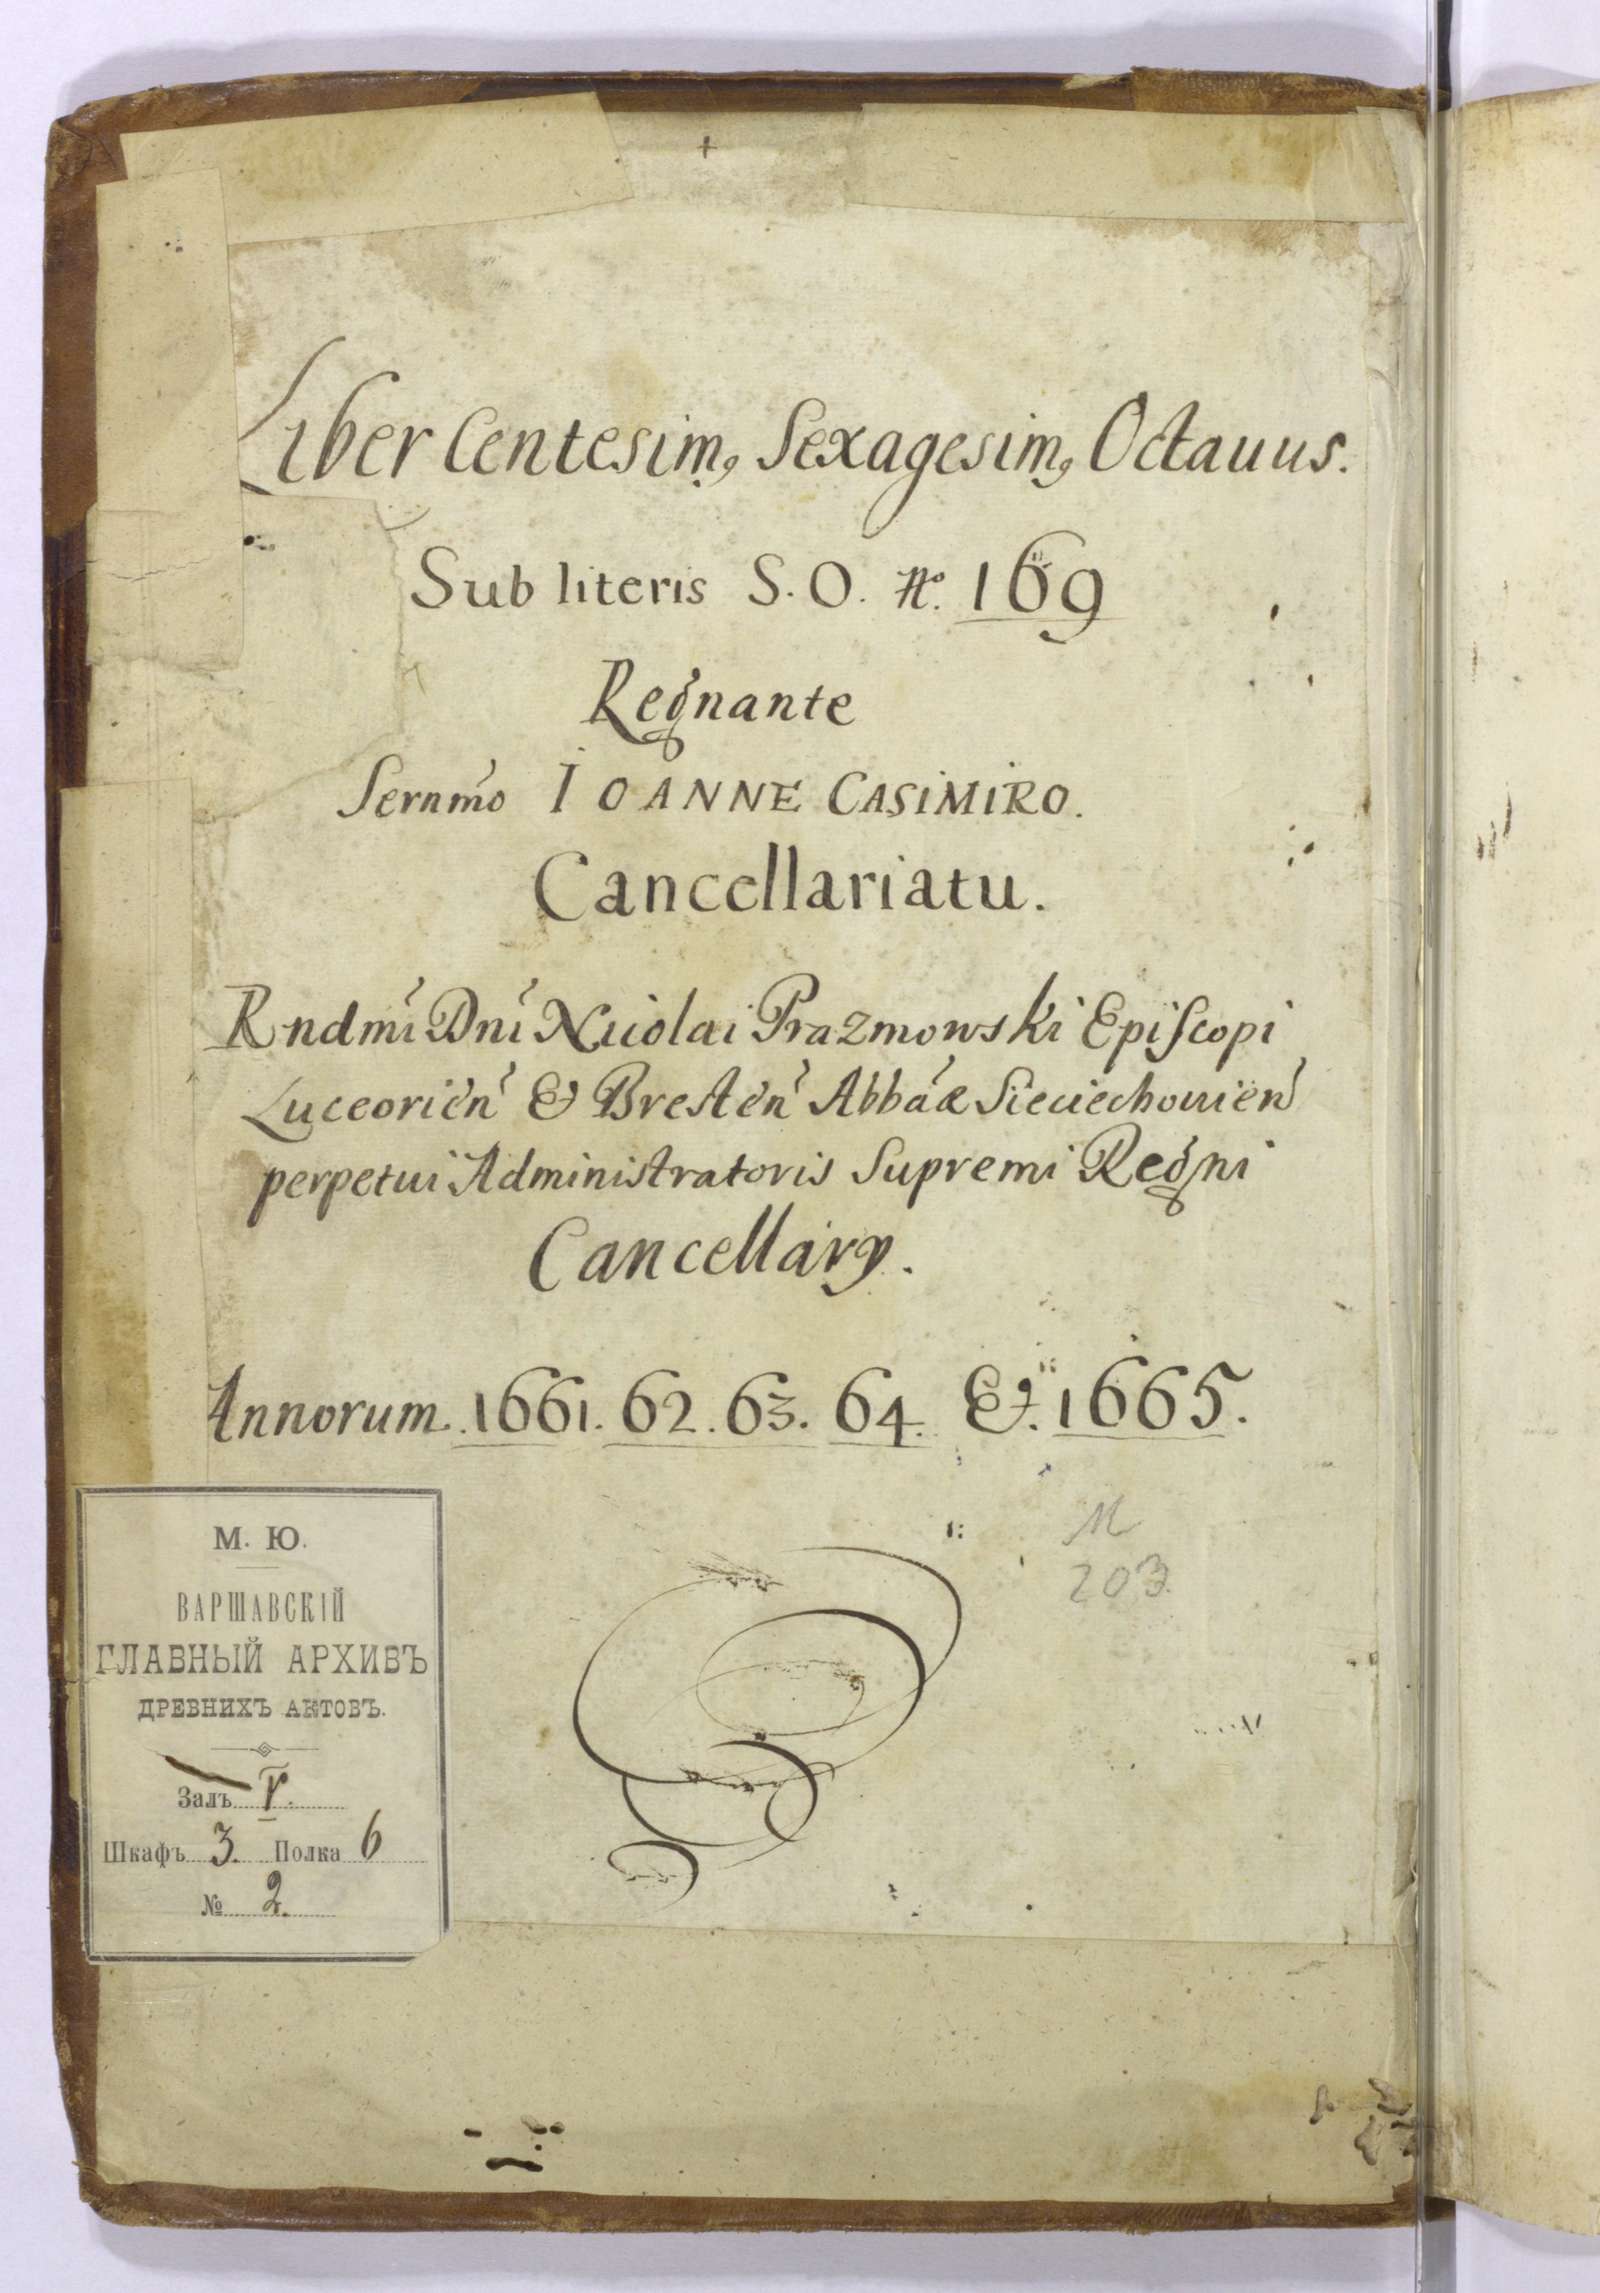 Liber Centesim9 Sexagesim9 Octauus.
Sub literis S. O. No. 169
Regnante
Sernmo IOANNE CASIMIRO.
Cancellariatu.
Rndmi Dni Nicolai Prazmowski Episcopi
Luceorien & Bresten Abbãe Sieciechouien
perpetui Administratoris Supremi Regni
Cancellary.
Annorum. 1661. 62. 63. 64. Et. 1665.
203
М. Ю.
ВАРШАВСКІЙ
ГЛАВНЫЙ АРХИВЪ
ДРЕВНИХЪ АКТОВЪ.
Залъ V.
Шкафъ 3. Полка 6
№ 2.